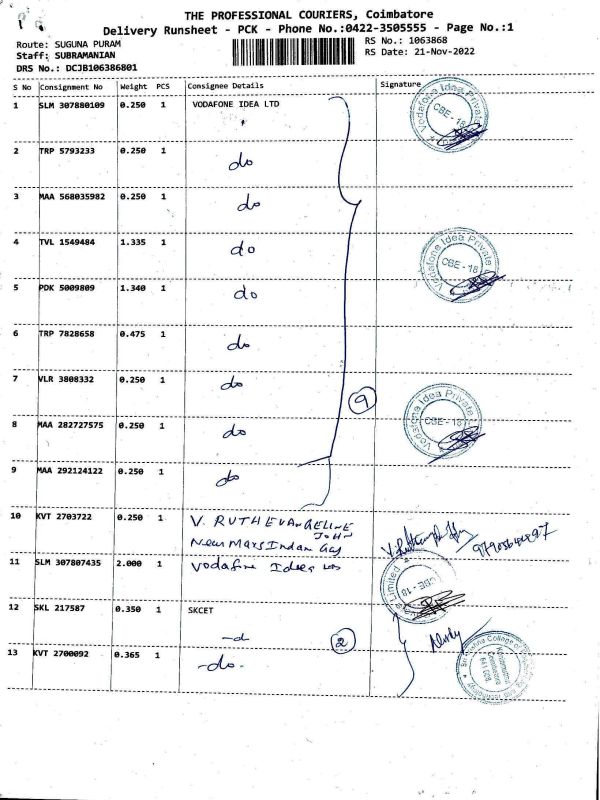 THE PROFESSIONAL COURIERS, Coimbatore
Delivery Runsheet - PCK - Phone No.:0422-3505555 - Page No.:1
Route: SUGUNA PURAM
RS No.: 1063868
Staff: SUBRAMANIAN
RS Date: 21-Nov-2022
DRS No.: DCJB106386801
S No Consignment No Weight PCS Consignee Details Signature
1 SLM 307880109 0.250 1 VODAFONE IDEA LTD
Vodafone Idea Private
CBE - 18
2 TRP 5793233 0.250 1 do
3 MAA 568035982 0.250 1 do
4 TVL 1549484 1.335 1 do
Vodafone Idea Private
CBE - 18
5 PDK 5009809 1.340 1 do
6 TRP 7828658 0.475 1 do
7 VLR 3808332 0.250 1 do
9
8 MAA 282727575 0.250 1 do
Vodafone Idea Private
CBE - 18
9 MAA 292124122 0.250 1 do
10 KVT 2703722 0.250 1 V. RUTH EVANGELINE
JOHN
Near
11 SLM 307807435 2.000 1 Vodafine Idea
Limited
CBE - 18
12 SKL 217587 0.350 1 SKCET
-d
2
13 KVT 2700092 0.365 1 -do-
College of
and Technology
Coimbatore
641 008